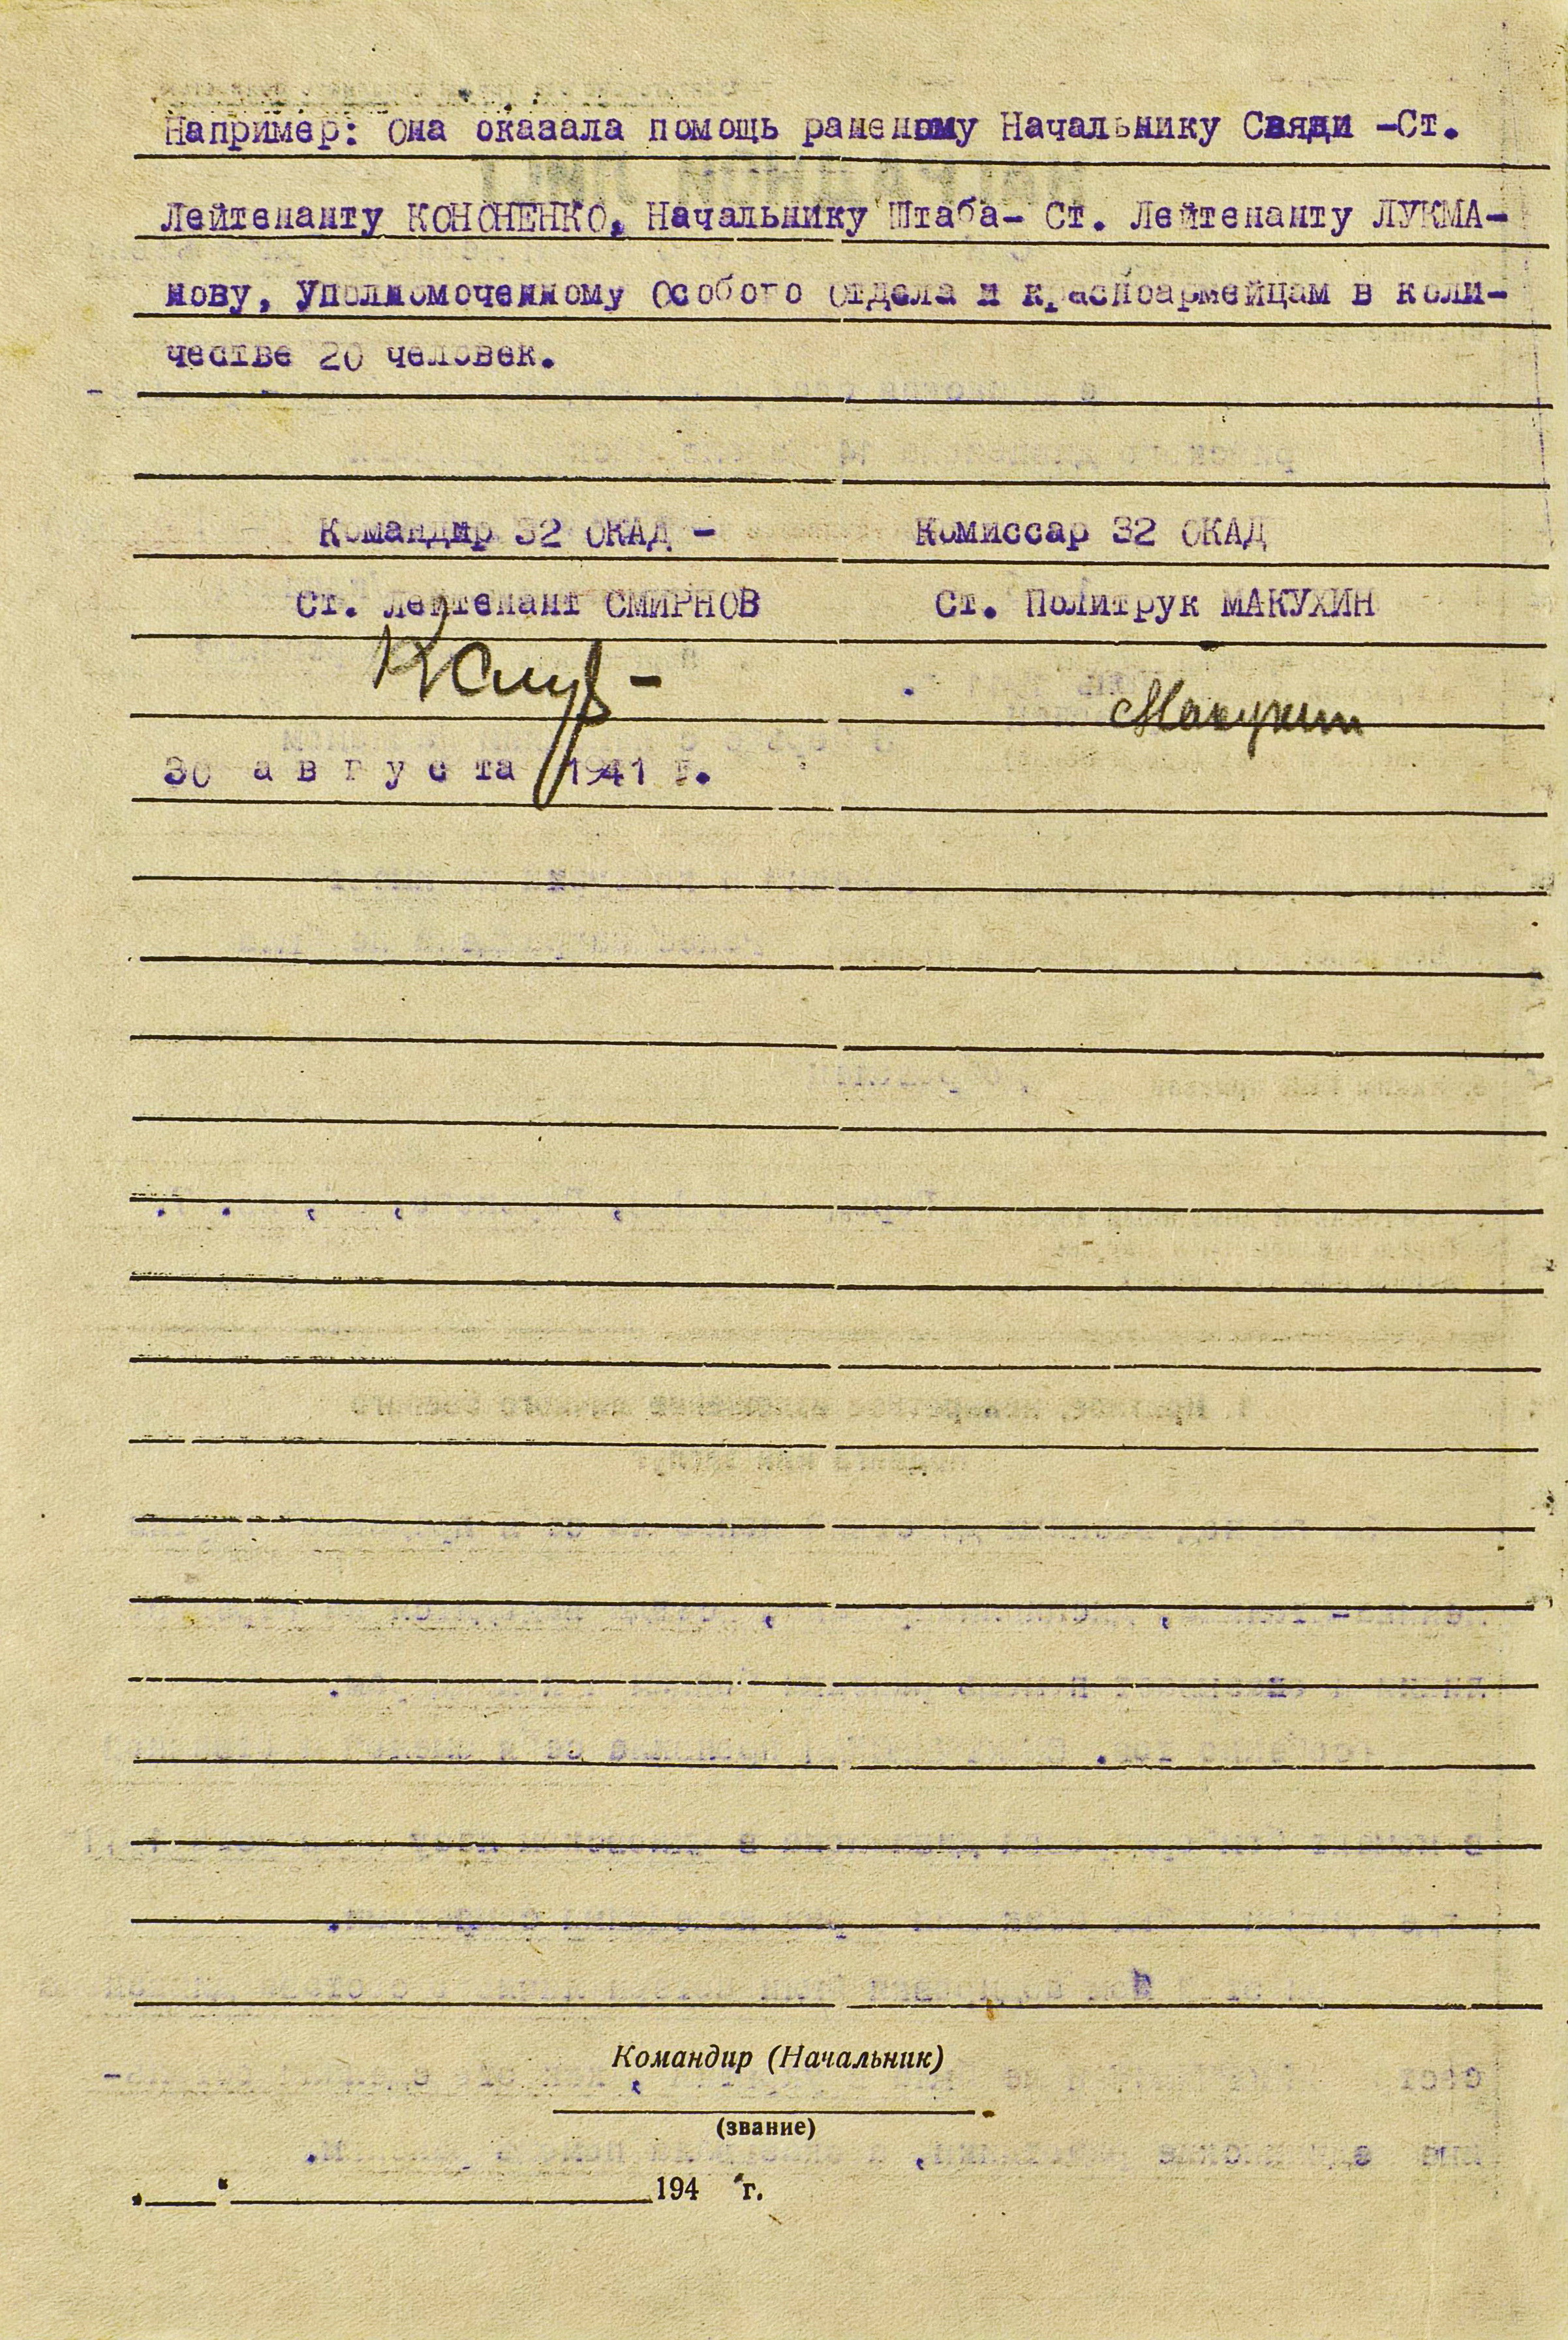 Например: Она оказала помощь раненому Начальнику Связи -Ст.
Лейтенанту КОНОНЕНКО, Начальнику Штаба- Ст. Лейтенанту ЛУКМА-
нову, Уполномоченному Особого Отдела и красноармейцам в коли-
честве 20 человек.
Командир 32 ОКАД - Комиссар 32 ОКАД
Ст. Лейтенант СМИРНОВ Ст. Политрук МАКУХИН
Макухин
30 а в г у с та 1941 г.
Командир (Начальник)
(звание)
„ “ 194 г.